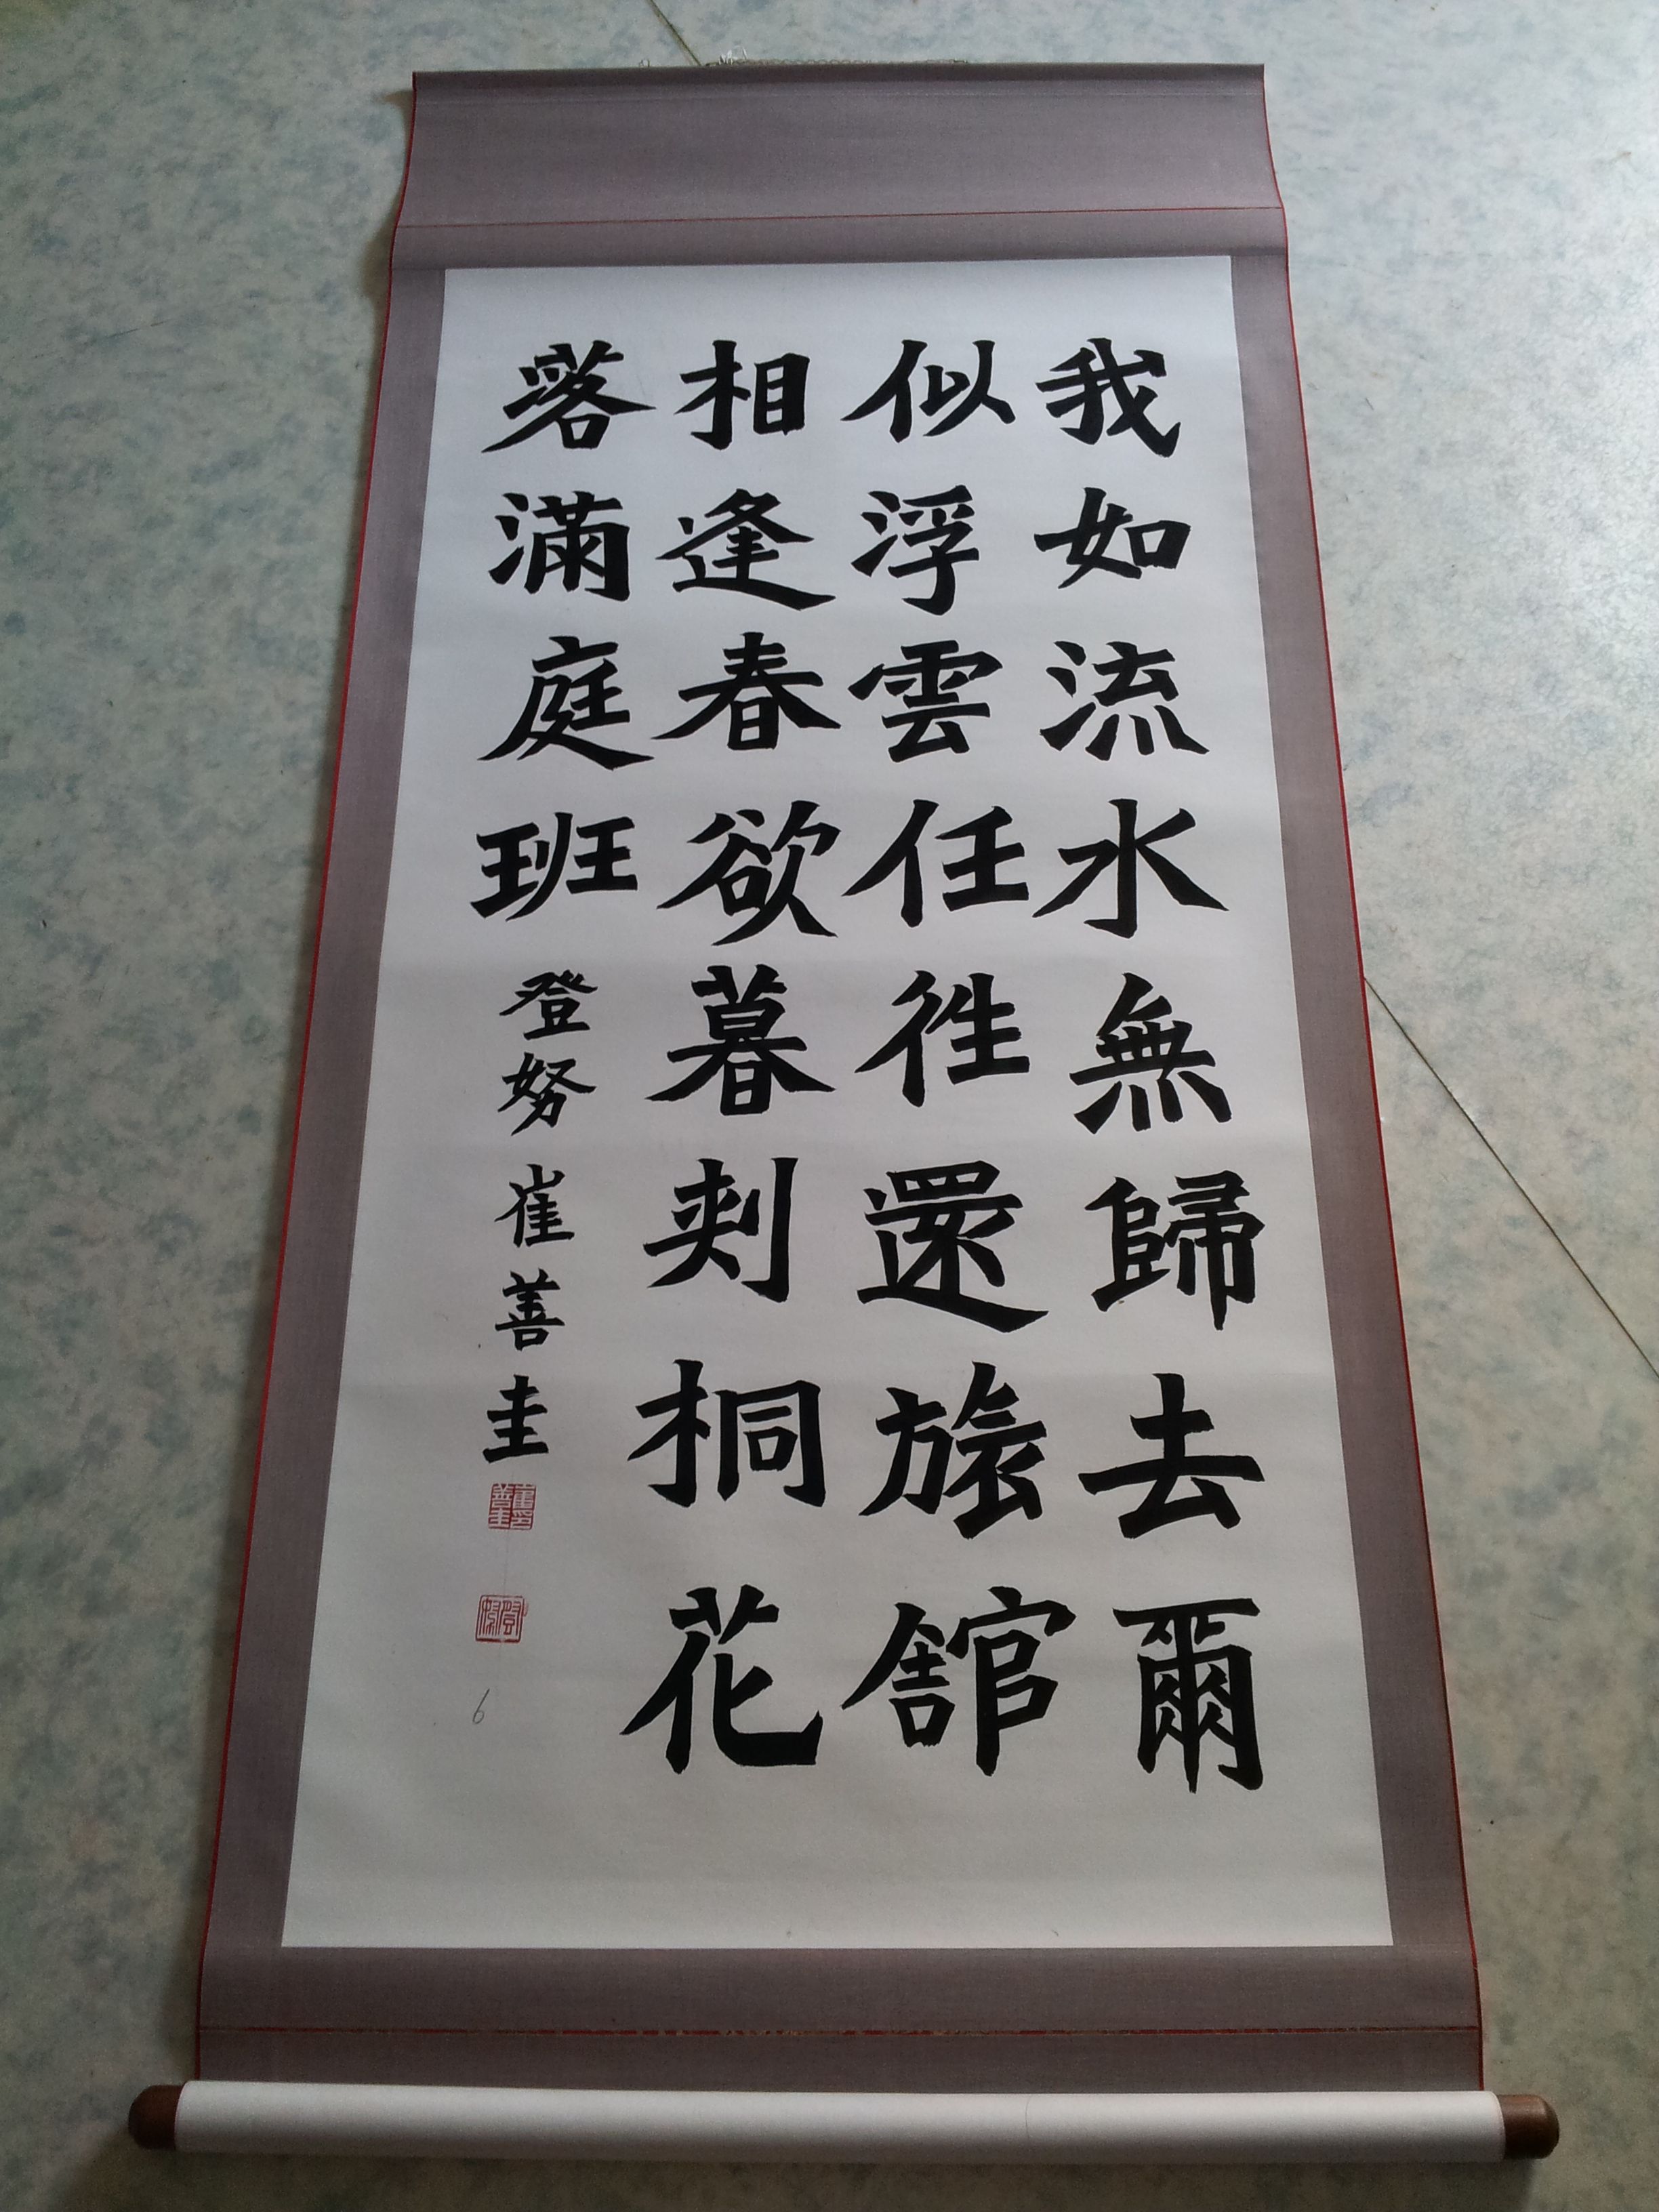 我如流水無歸去爾
似浮雲任徃還旅舘
相逢春欲暮刾桐花
落滿庭班
登努 崔善圭
6